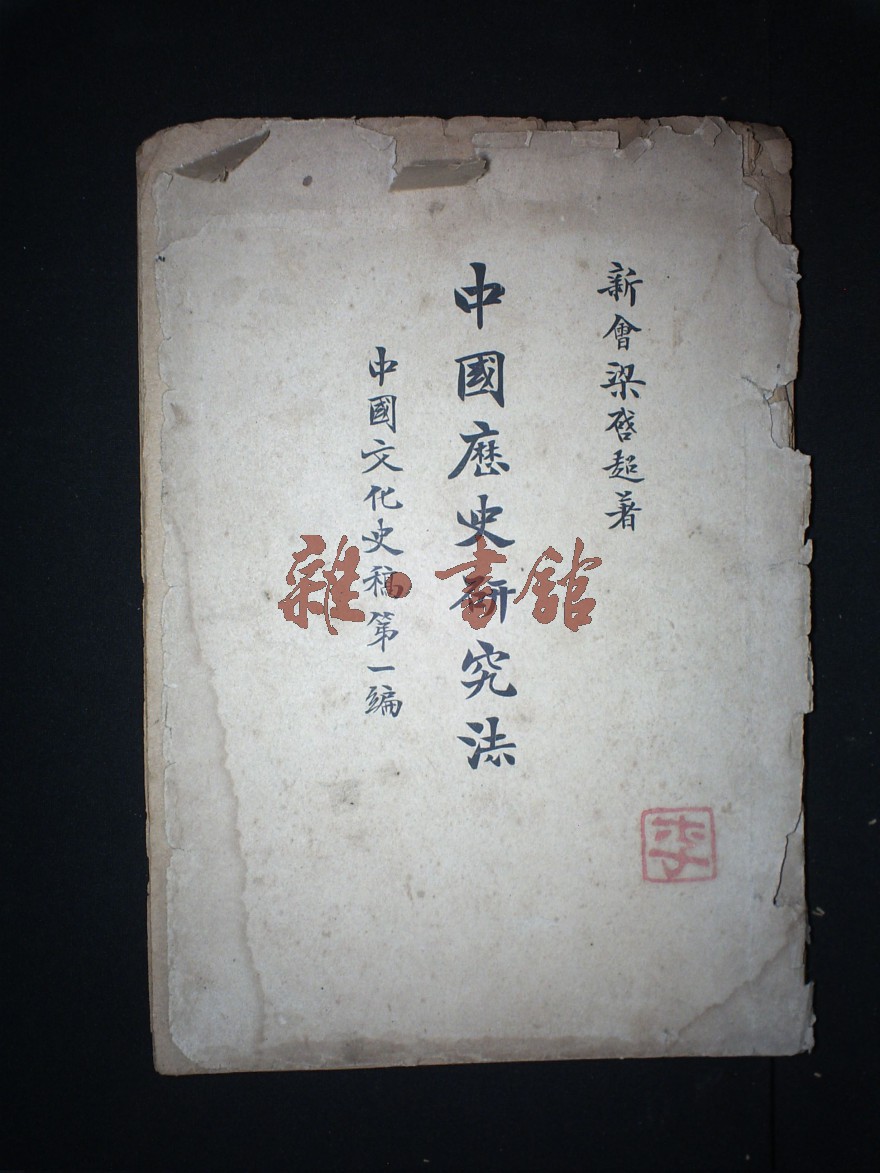 新會梁啓超著
中國歷史研究法
中國文化史稿第一編
雜·書館
李